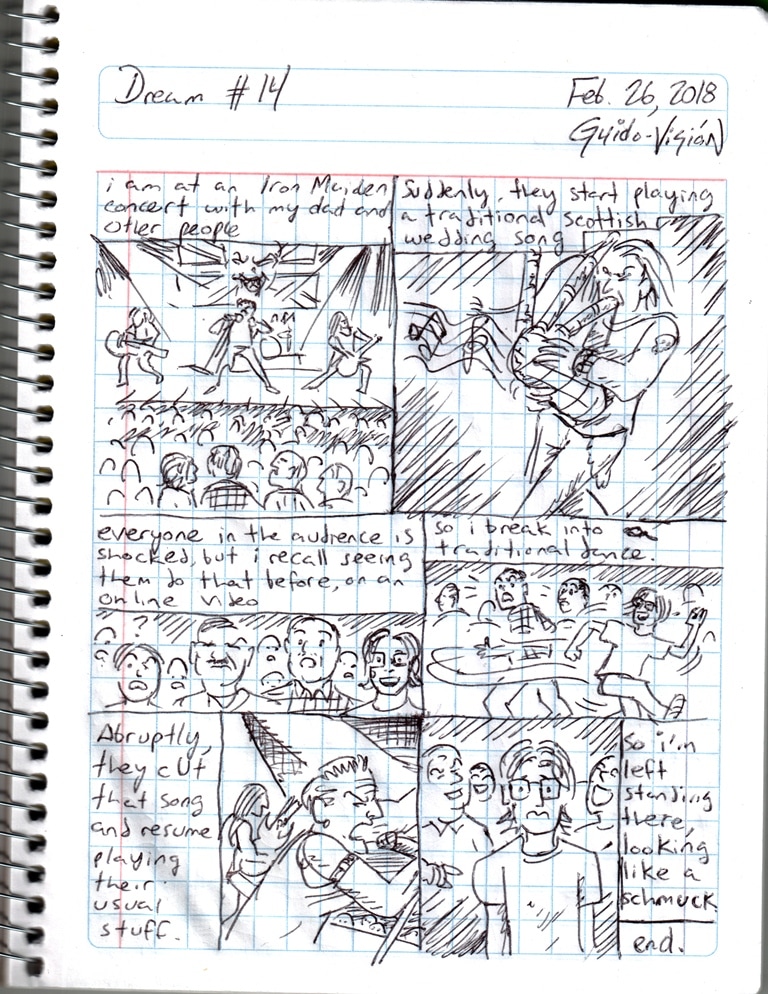 Dream #14
Feb. 26, 2018
Guido-Visión
i am at an Iron Maiden
concert with my dad and
other people
Suddenly, they start playing
a traditional Scottish
wedding song
everyone in the audience is
shocked, but i recall seeing
them do that before, on an
online video
?
so i break into
traditional dance.
Abruptly,
they cut
that song
and resume
playing
their
usual
stuff.
So i'm
left
standing
there,
looking
like a
schmuck
end.